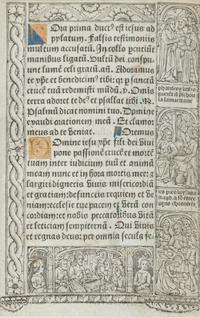 Ora prima duct' est iesus ad
pylatum. Falsis testimoniis
multum accusatū. In collo percutiūt
manibus ligatū. Vultū dei conspu-
unt lumē celi gratū. añ. Adoramus
te xp̄e et benedicim' tibi: q̄ p̄ sanctā
crucē tuā redemisti mūdū. ℣. Omīs
terra adoret te de' et psallat tibi. ℟.
Psalmū dicat nomini tuo. Domine
exaudi orationem meā. Et clamor
meus ad te veniat. Oremus
Domine iesu xp̄e fili dei viui
pone passionē crucē et mortē
tuam inter iudicium tuū et animā
meam nunc et in hora mortis mee: et
largiri digneris viuis misericordiā
et gratiam: defunctis requiem et ve-
niam: ecclesie tue pacem et verā con-
cordiam: et nobis peccatoribus vitā
et leticiam sempiternā. Qui viuis
et regnas deus: per omnia secula se-
la samaritaine